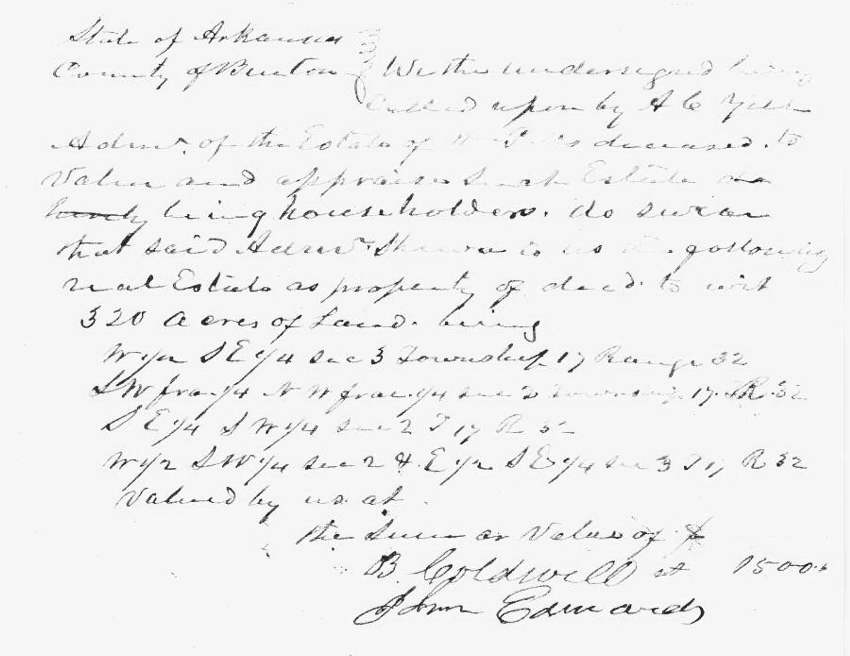 State of Arkansas
County of Benton We the undersigned being
Called upon by A C Yell
Admr. of the Estate of deceased. to
Value and appraise Such Estate
being householders. do swear
that said Admr. Shewn to us the following
real Estate as property of decd. to wit
320 Acres of Land. being
W 1/2 S E 1/4 sec 3 Township 17 Range 32
S W frac 1/4 N W frac 1/4 sec 2 Township 17. R. 32
S E 1/4 S W 1/4 sec 2 T 17 R 32
W 1/2 S W 1/4 sec 2 & E 1/2 S E 1/4 sec 3 T 17 R 32
Valued by us at
the Sum or Value of $
B. Coldwell at 1500.
John Edwards